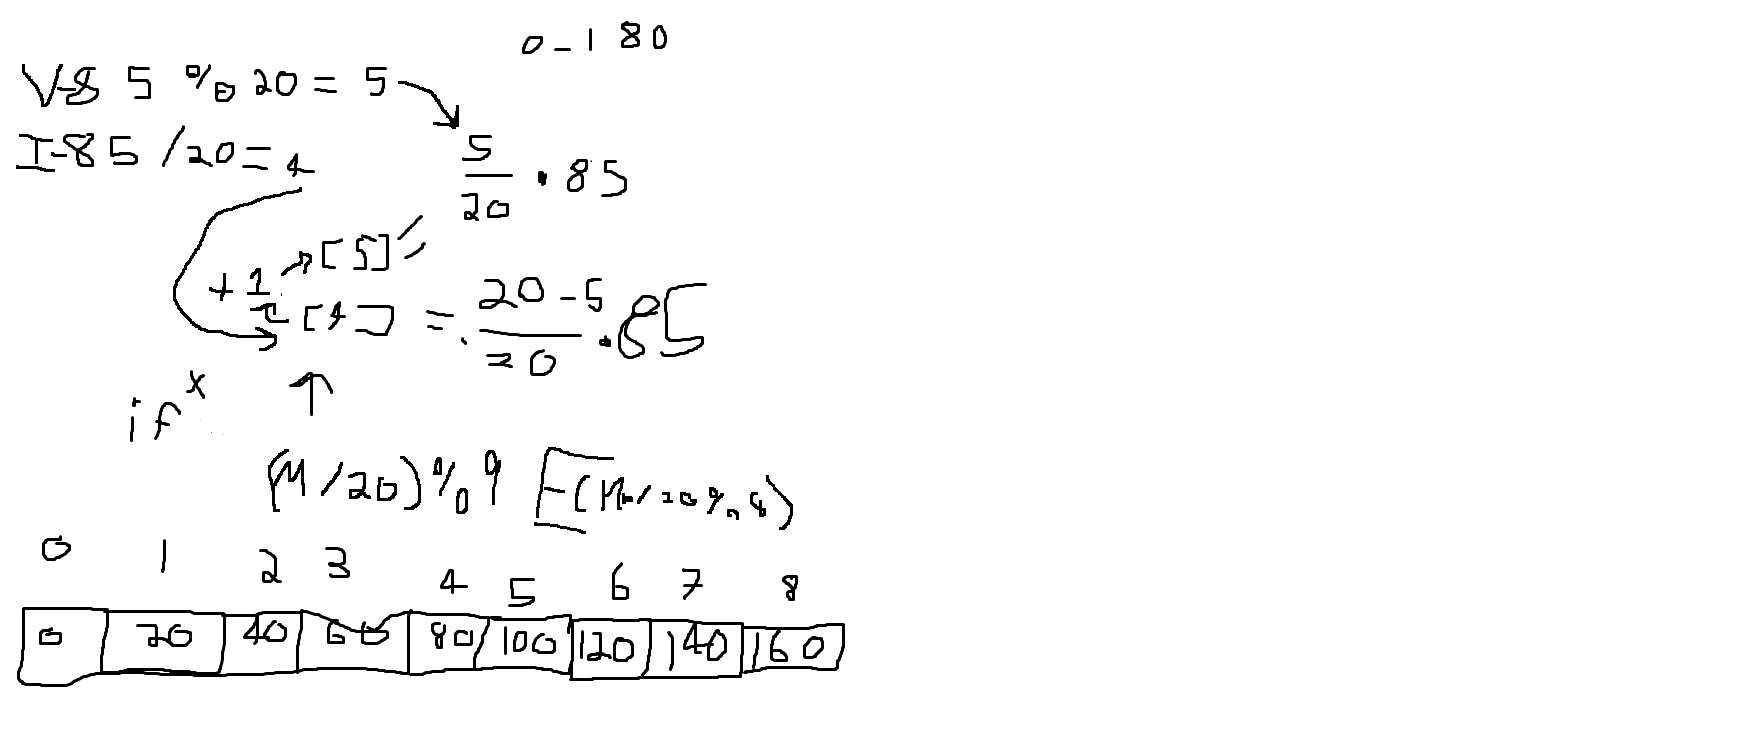 0-180
V-85 % 20 = 5
I-85 /20 = 4
5
20
· 85
+1 → [5] =
[4] = 20 - 5
20
· 85
if x
(M/20) % 9
0 1 2 3 4 5 6 7 8
0 20 40 60 80 100 120 140 160